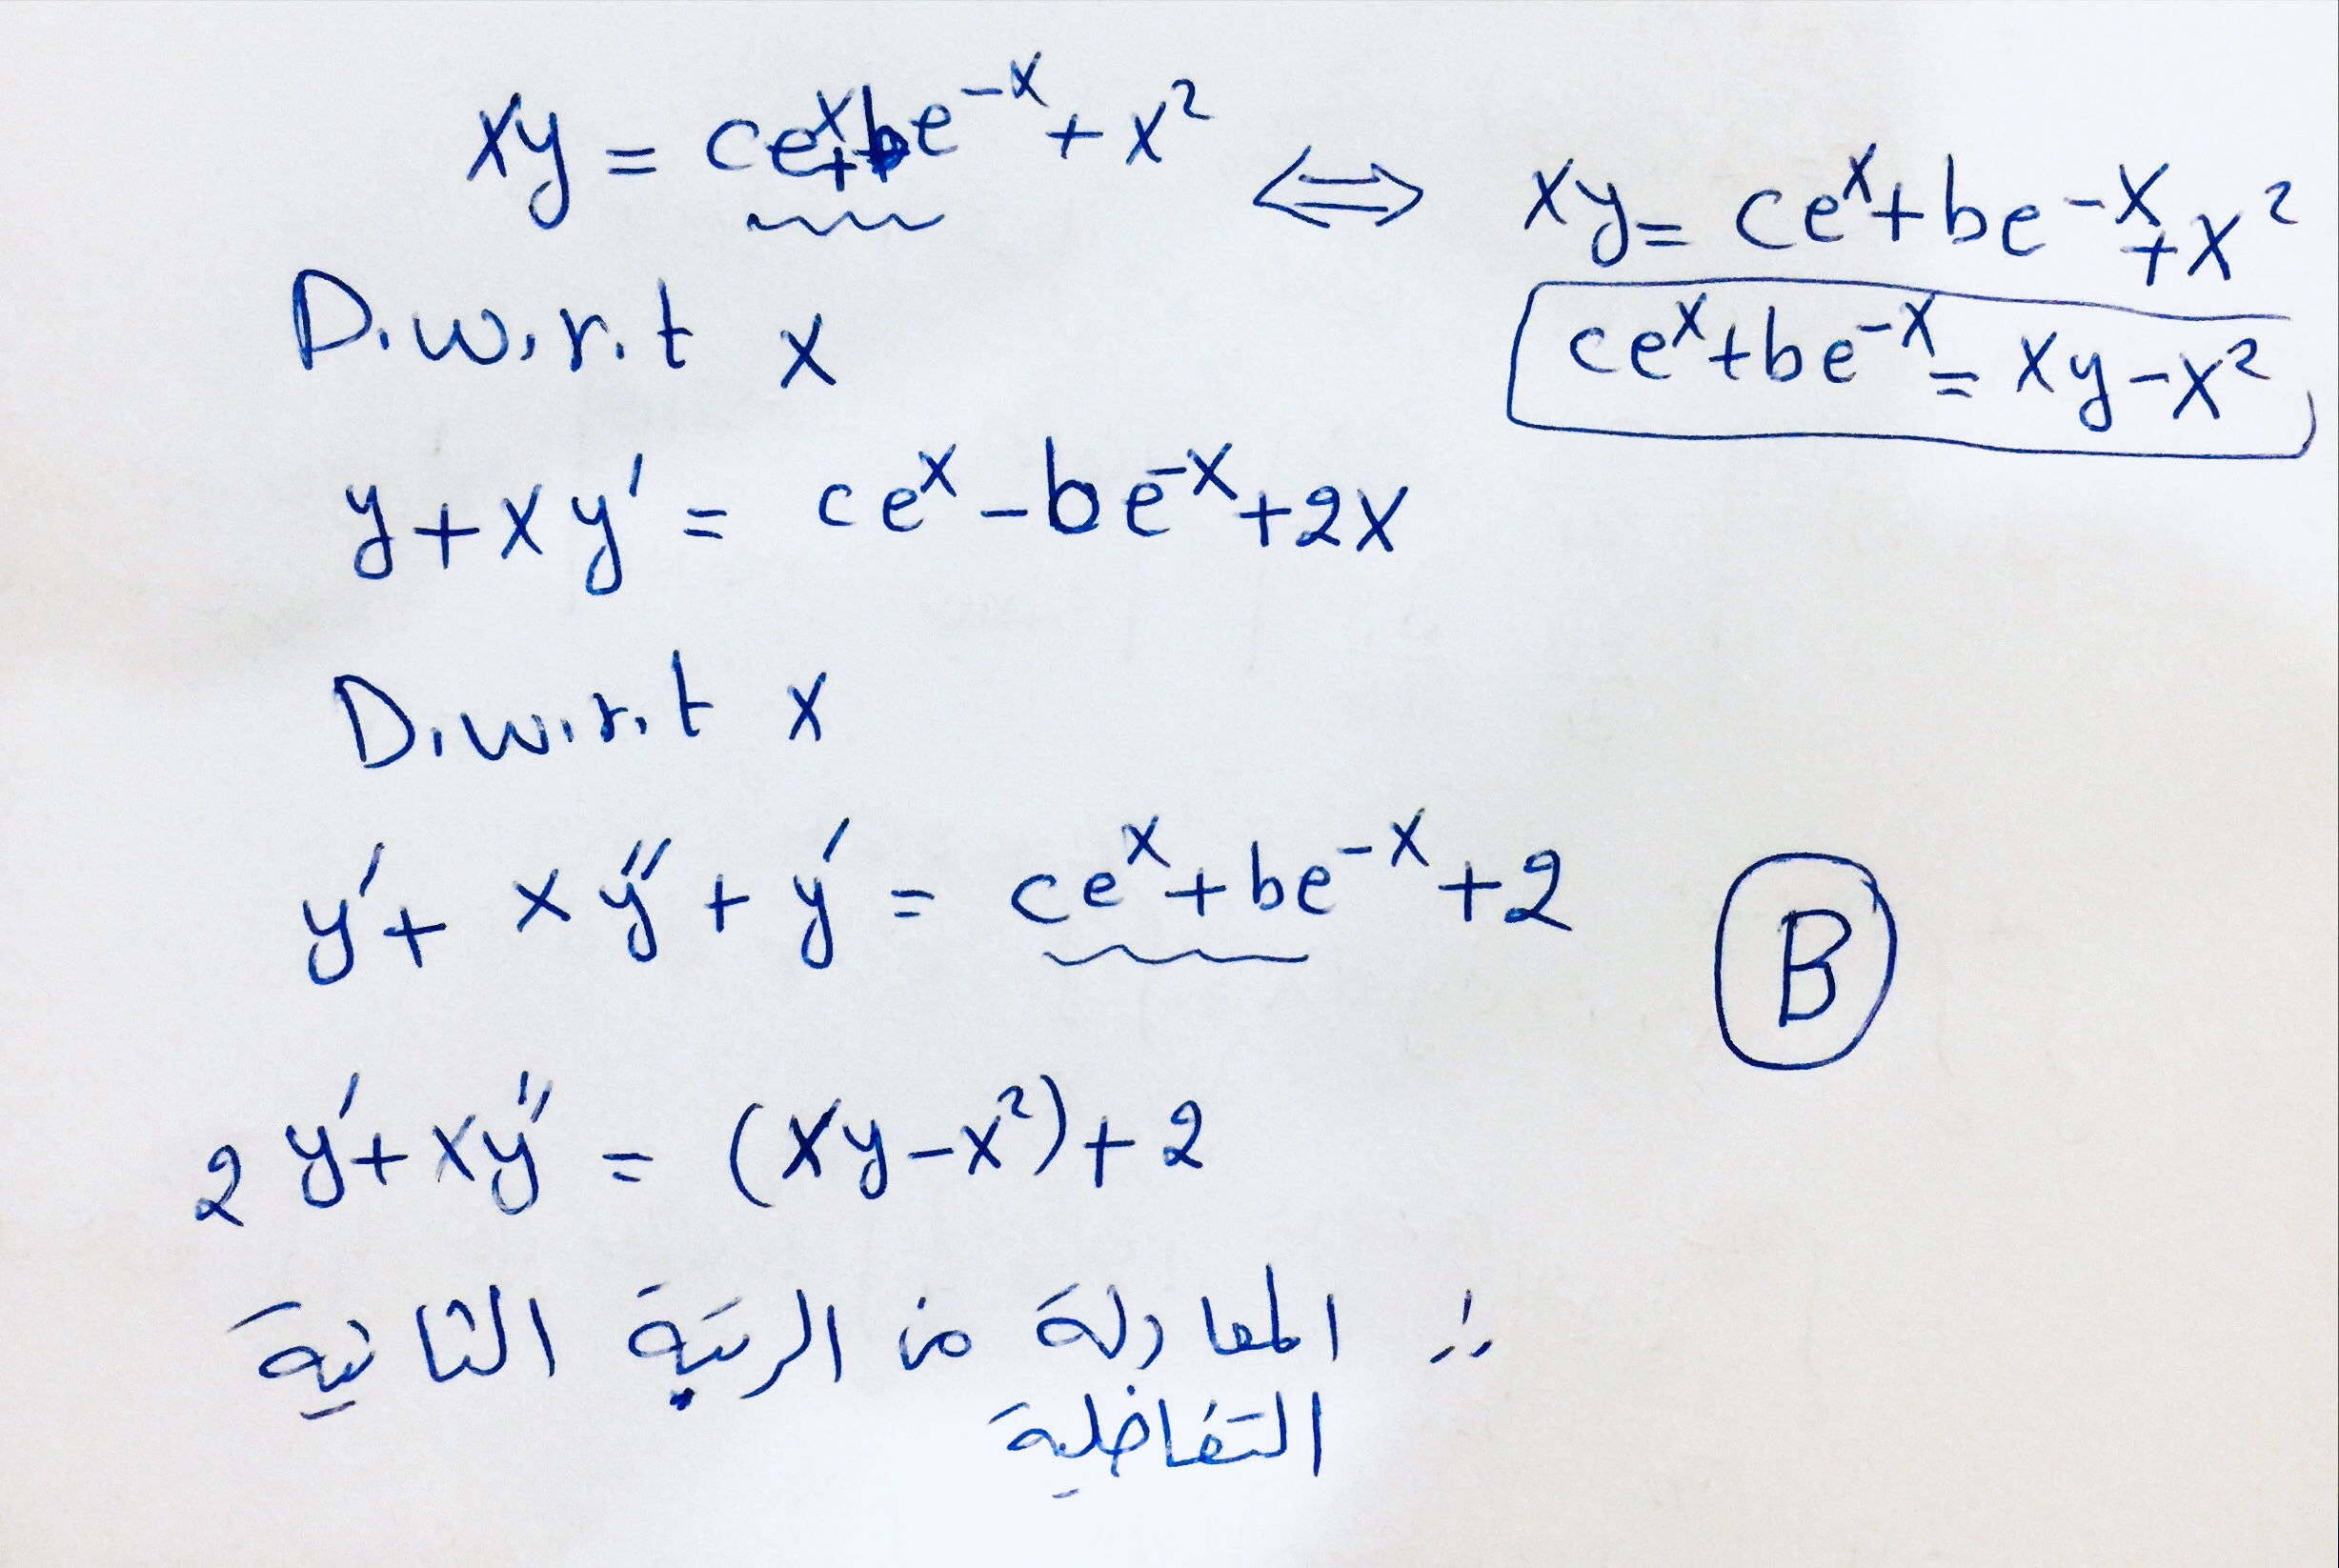 xy = ce^x + be^-x + x² ⟺ xy = ce^x + be^-x + x²
ce^x + be^-x = xy - x²
D.w.r.t x
y + xy' = ce^x - be^-x + 2x
D.w.r.t x
y' + xy'' + y' = ce^x + be^-x + 2
B
2y' + xy'' = (xy - x²) + 2
∴ المعادلة من الرتبة الثانية
التفاضلية